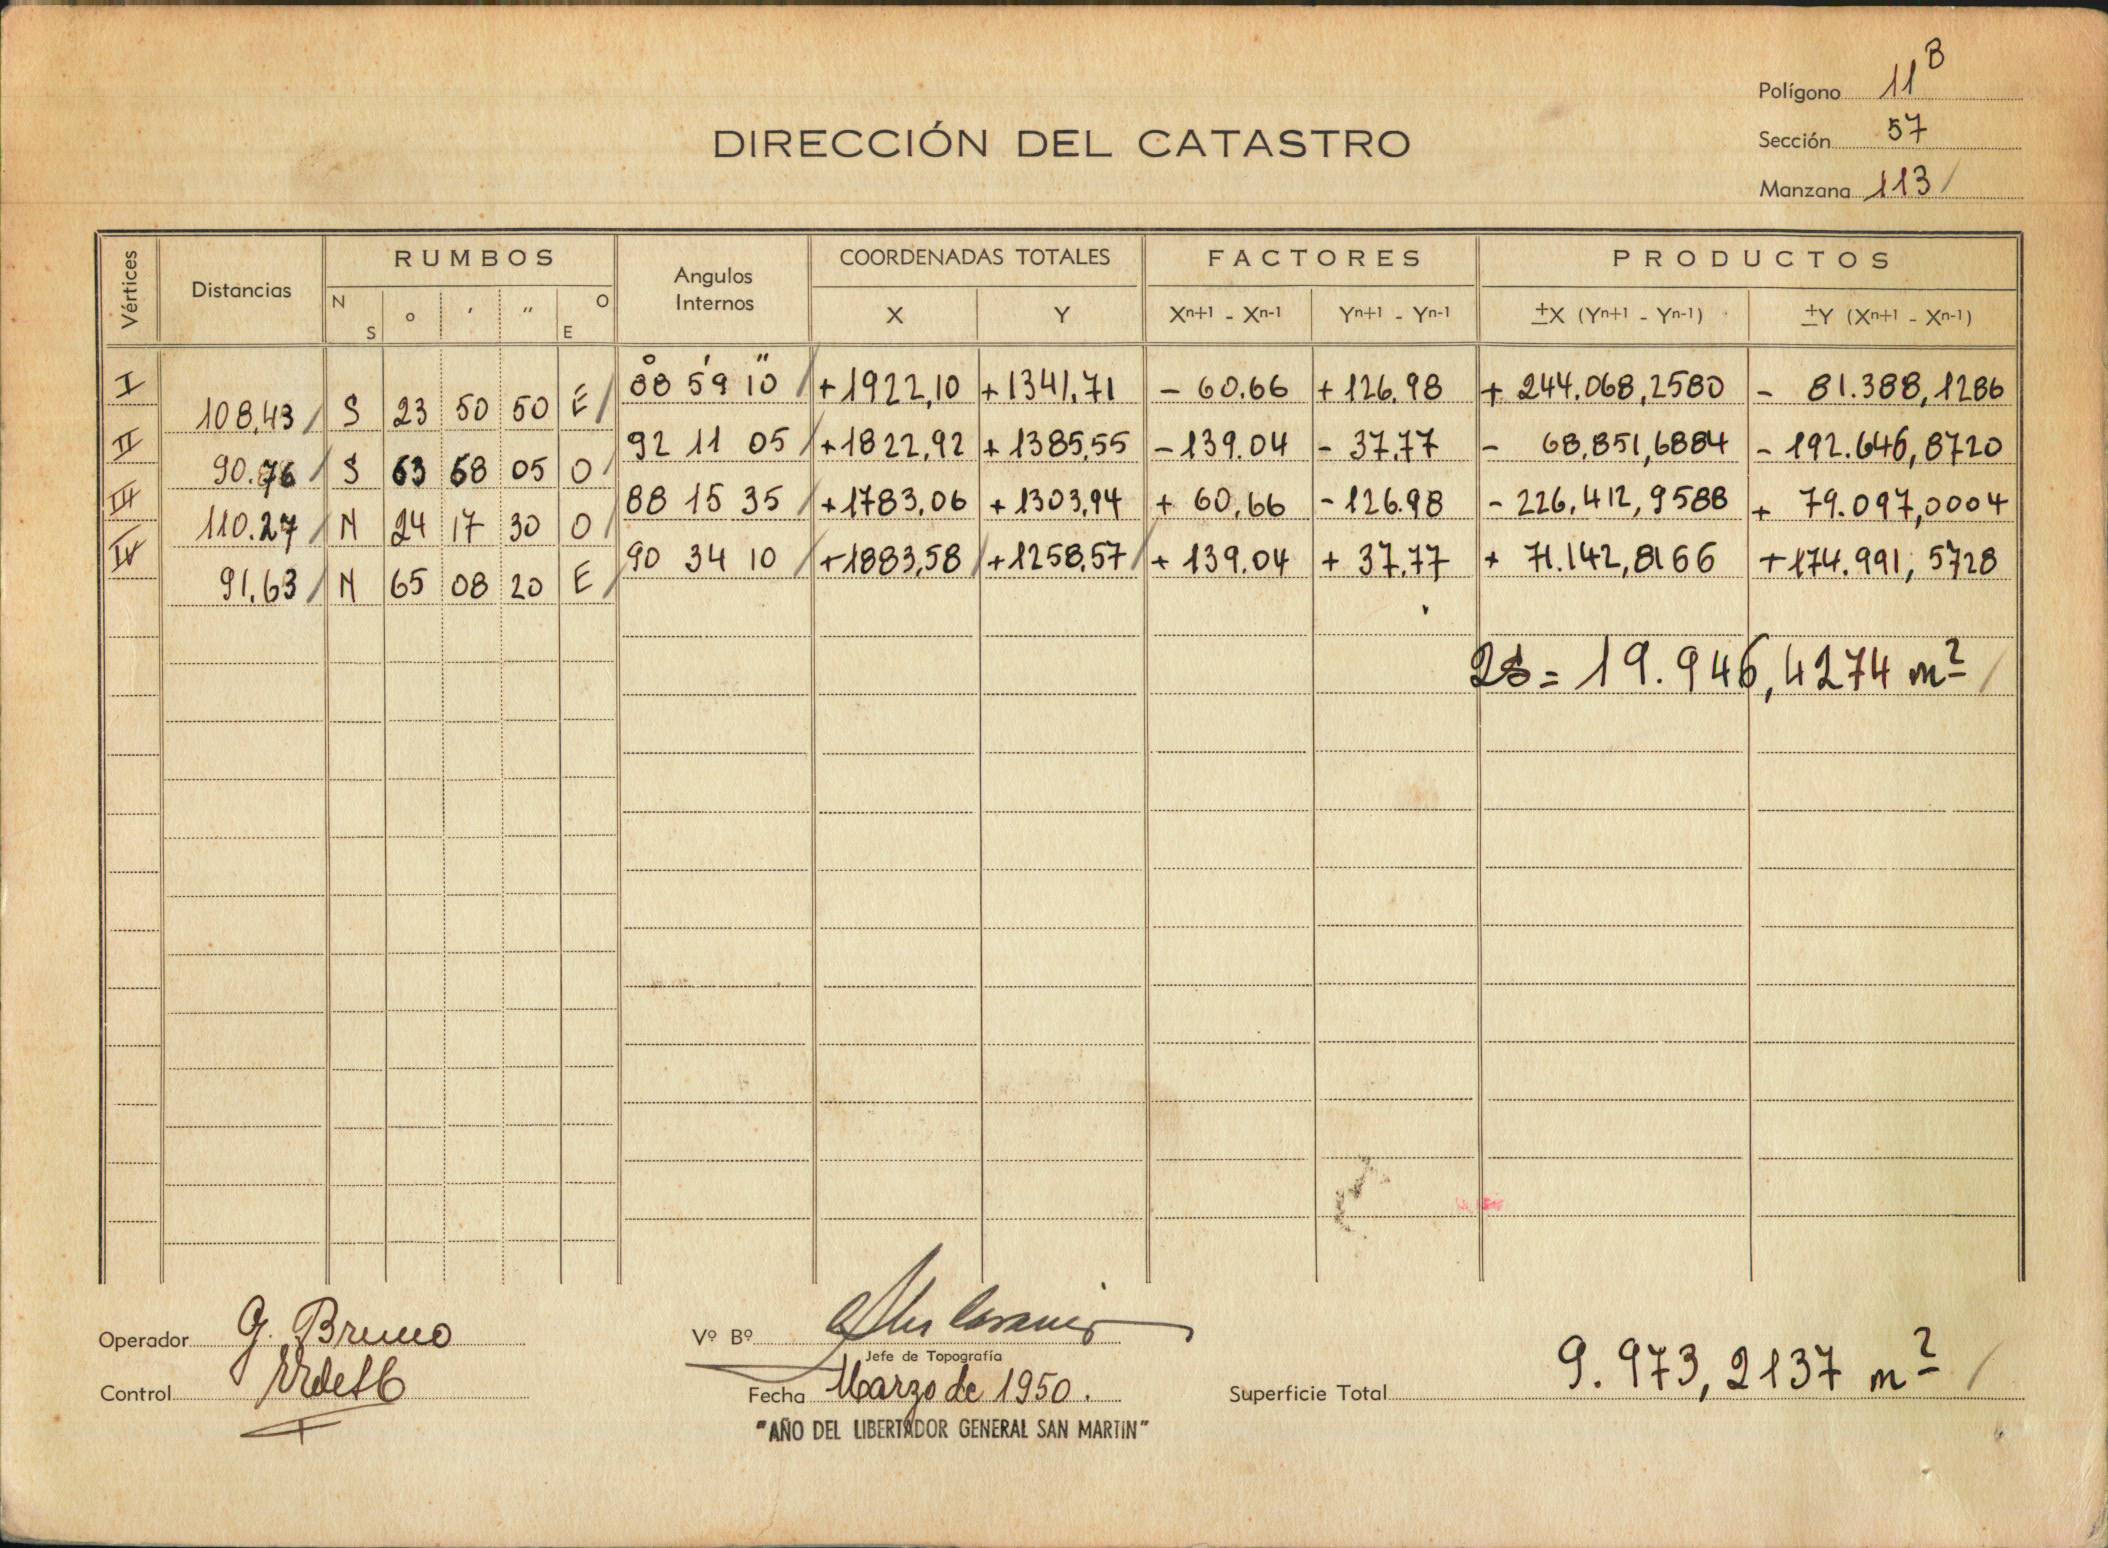 Polígono 11 B
Sección 57
Manzana 113
DIRECCIÓN DEL CATASTRO
Vértices Distancias RUMBOS Angulos Internos COORDENADAS TOTALES FACTORES PRODUCTOS
N S ° ' " O E X Y Xn+1 - Xn-1 Yn+1 - Yn-1 ±X (Yn+1 - Yn-1) ±Y (Xn+1 - Xn-1)
° ' "
I 88 59 10 +1922,10 +1341,71 - 60.66 +126.98 + 244.068,2580 - 81.388,1286
108,43 S 23 50 50 E
II 92 11 05 +1822,92 +1385,55 -139.04 - 37.77 - 68.851,6884 -192.646,8720
90.76 S 63 58 05 O
III 88 15 35 +1783,06 +1303,94 + 60,66 -126.98 - 226.412,9588 + 79.097,0004
110.27 N 24 17 30 O
IV 90 34 10 +1883,58 +1258,57 + 139.04 + 37,77 + 71.142,8166 +174.991,5728
91,63 N 65 08 20 E
2S = 19.946,4274 m²
Operador G. Bruno
Control
Vº Bº
Jefe de Topografía
Fecha Marzo de 1950.
"AÑO DEL LIBERTADOR GENERAL SAN MARTIN"
Superficie Total 9.973,2137 m²